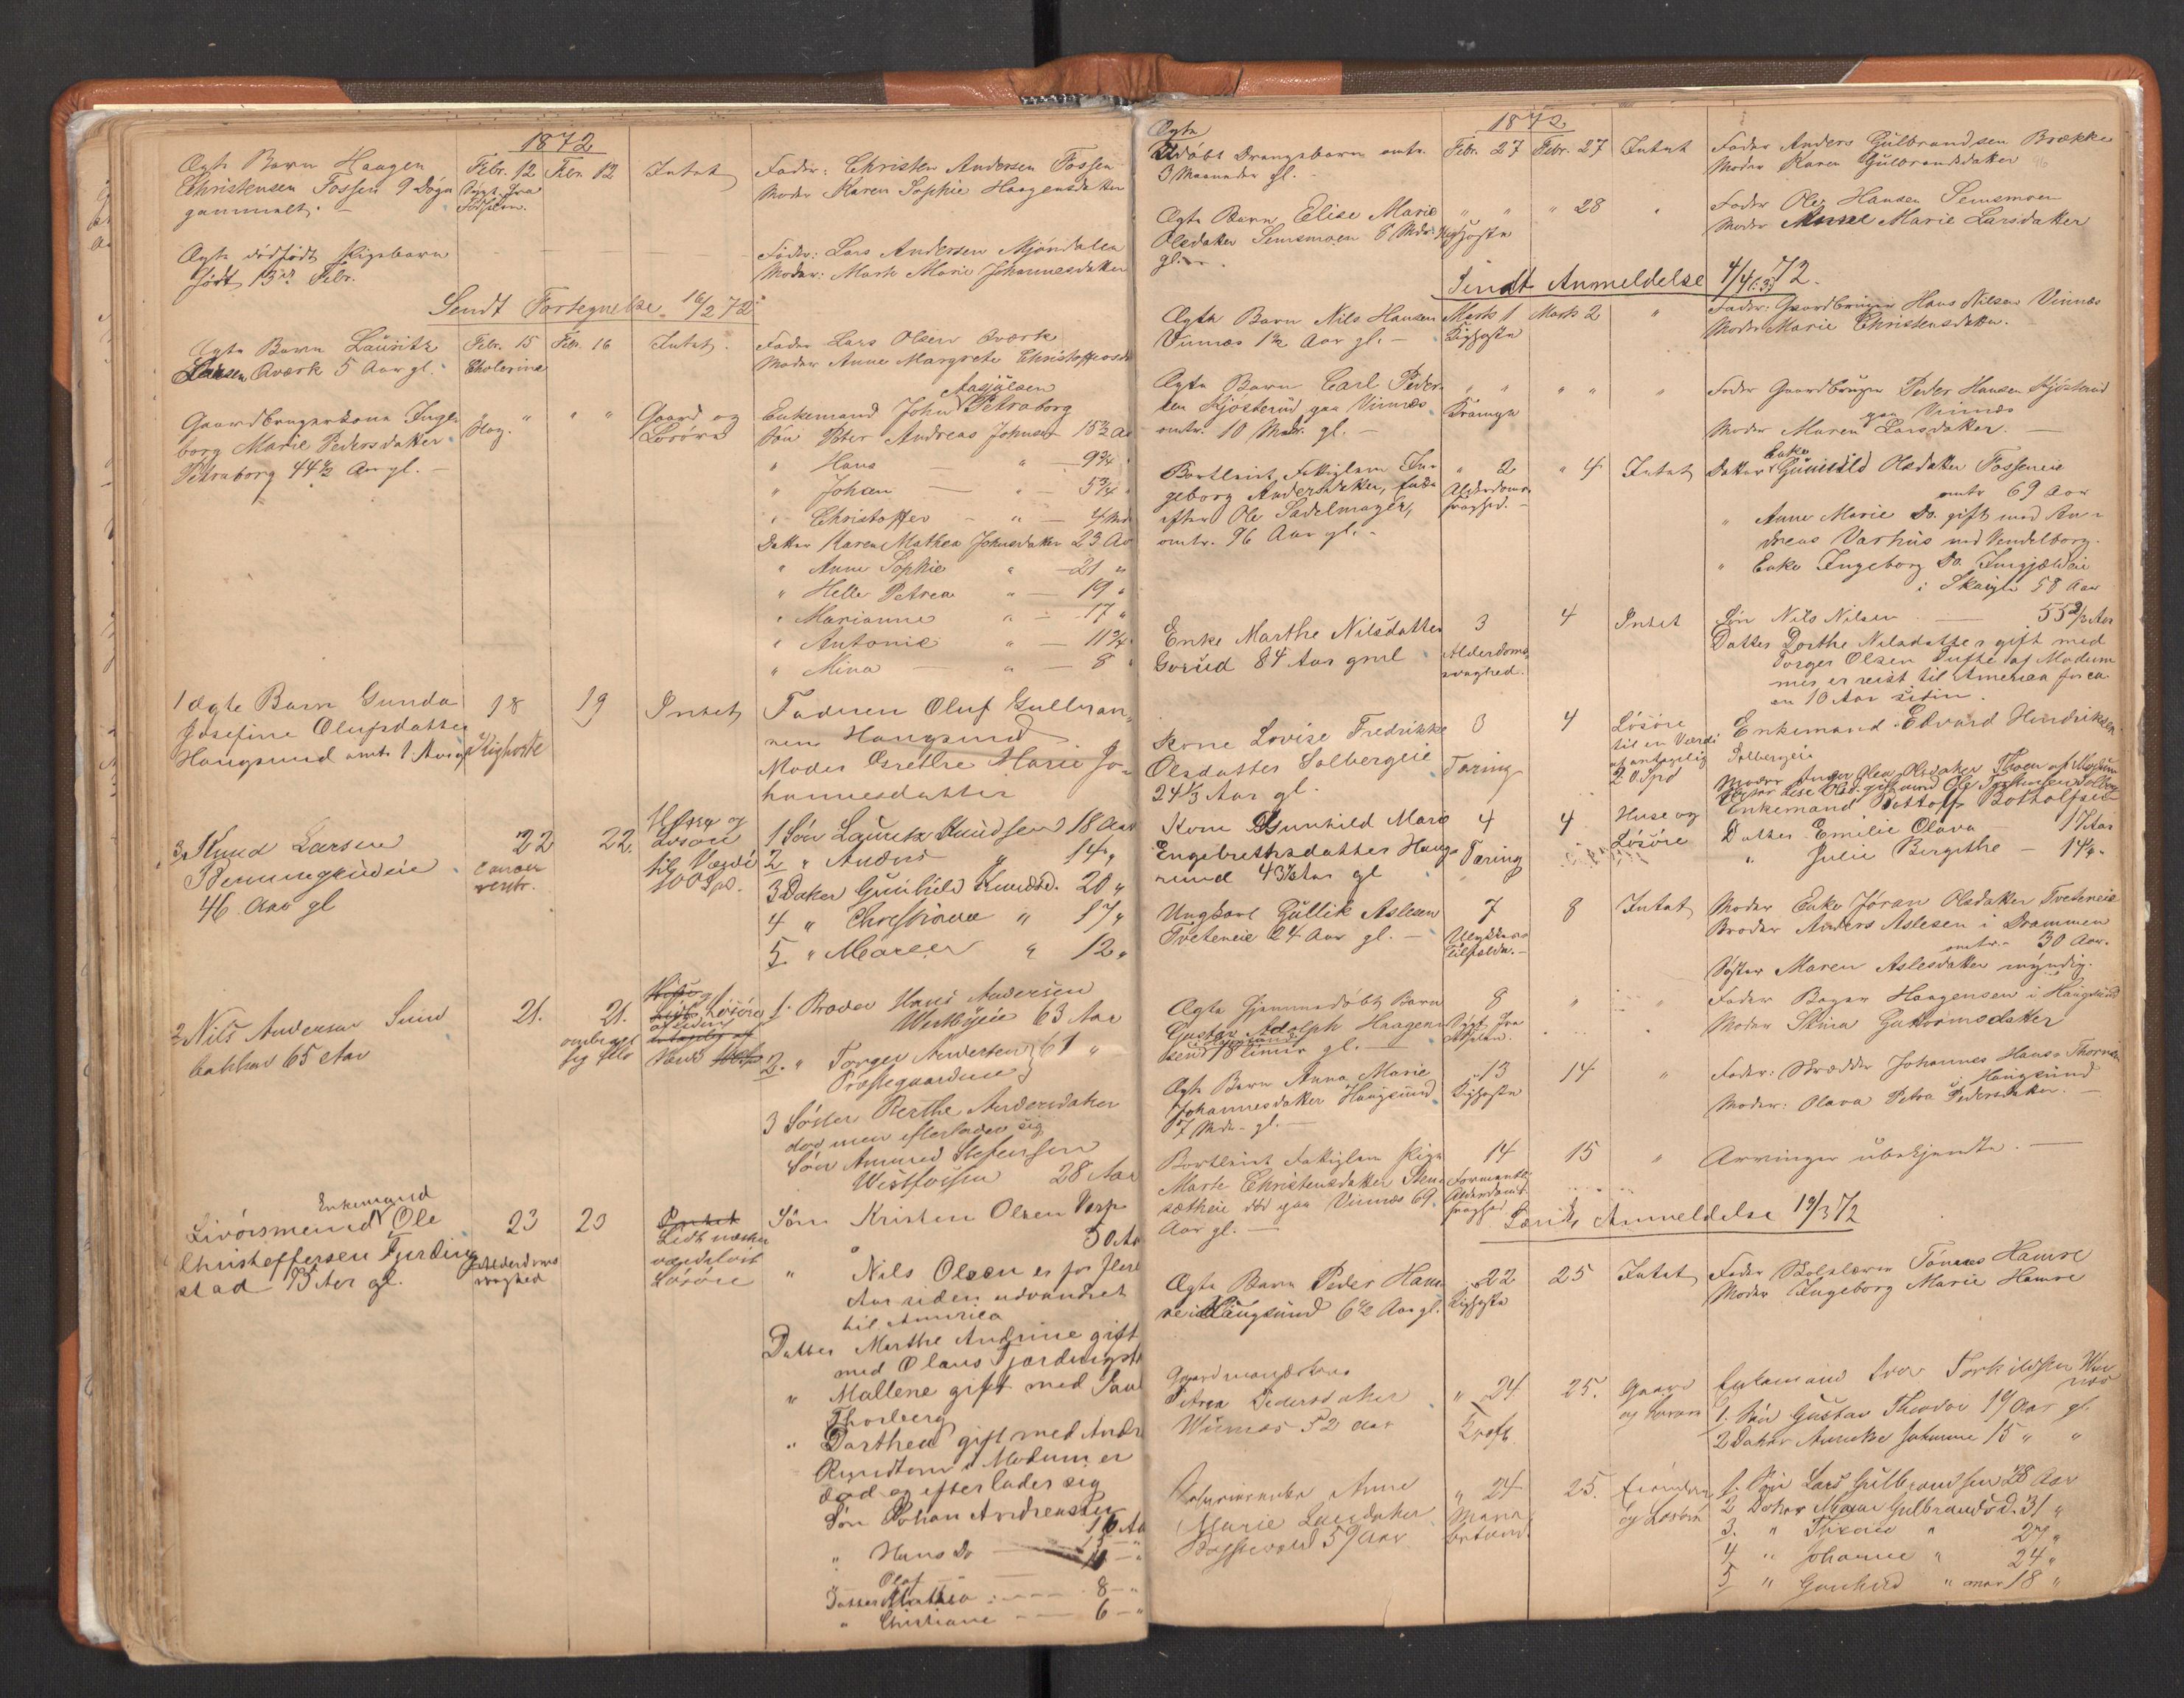 1872
Ægte Barn Haagen
Christensen Fossen 9 Døgn
gammelt. —
Febr. 12
Svagt fra
Fødselen.
Febr. 12
Intet
Fader: Christen Andersen Fossen
Moder Karen Sophie Haagensdatter
Ægte dødfødt Pigebarn
født 13de Febr.
Fader: Lars Andersen Mjøndalen
Moder: Marte Marie Johannesdatter
Sendt Fortegnelse 16/2 72
Ægte Barn Lauritz
Larsen Aværk 5 Aar gl.
Febr. 15
Cholerine
Febr. 16
Intet.
Fader Lars Olsen Aværk
Moder Anne Margrete Christoffersd
Gaardbrugerkone Inge-
borg Marie Pedersdatter
Petraborg 44½ Aar gl. —
Slag.
Gaard og
Løsøre
Enkemand John Aasjulsen Petraborg
Søn Peter Andreas Johnsen 15½ Aar
" Hans " — 9¾
" Johan — " — 5¾
" Christoffer — " — 4 Mdr
Datter Maren Mathea Johnsdatter 23 Aar
" Anne Sophie " — 21 "
" Helle Petrea " — 19 "
" Marianne " — 17 "
" Antonie " — 11¾
" Mina — " — 8
1 ægte Barn Gunda
Josefine Olufsdatter
Haugsund omtr. 1 Aar gl
18
Kighoste
19
Intet
Faderen Oluf Gulbran-
sen Haugsund
Moder Grethe Marie Jo-
hannesdatter
3 Knud Larsen
46 Aar gl
22
Cancer
22.
Huse og
Løsøre
til Værdi
100 Spd.
1 Søn Lauritz Knudsen 18 Aar
2 " Anders " 14 "
3 Datter Gunhild Knudsd. 20 "
4 " Christiane " 17 "
5 " Maren " 12 "
2 Nils Andersen Sund
bakken 65 Aar
21.
21.
ombragt
sig selv
Løsøre
1. Broder Hans Andersen
63 Aar
2. " Torger Andersen 61 "
Præstegaardseie
3 Søster Berthe Andersdatter
død men efterlader sig
Søn Amund Stefensen
Vestfossen 28 Aar
Livøresmand Enkemand Ole
Christoffersen Fjerding
stad 75 Aar gl.
23
Alderdoms
svaghed
23
Intet
Lidt næsten
værdiløst
Løsøre
Søn Kristen Olsen
30 Aar
" Nils Olsen er for flere
Aar siden udvandret
til America
Datter Marthe Andrine gift
med Olaus Fjerdingst
" Mallene gift med Paul
Thorberg
" Dorthea gift med Andr
i Modum er
død og efterlader sig
Søn Johan Andreassen
16 Aar
" Hans Do
" Olaf
Datter Mathea — 8 — "
" Christiane — 6 — "
1872
Ægte
Udøbt Drengebarn omtr.
3 Maaneder gl. —
Febr. 27
Febr. 27
Intet
Fader Anders Gulbrandsen Brække
Moder Karen Gulbrandsdatter
96
Ægte Barn Elise Marie
Olsdatter Semsmoen 8 Mdr.
gl. —
" "
Kighoste
" 28
"
Fader Ole Hansen Semsmoen
Moder Anne Marie Larsdatter
Sendt Anmeldelse 4/4 (:3:) 72.
Ægte Barn Nils Hansen
Vinnæs 1½ Aar gl. —
Marts 1
Kighoste
Marts 2
"
Fader: Gaardbruger Hans Nilsen Vinnæs
Moder Marie Christensdatter.
Ægte Barn Carl Peder-
sen Kjøsterud paa Vinnæs
omtr. 10 Mdr. gl. —
" "
Krampe
" "
"
Fader Gaardbruger Peder Hansen Kjøsterud
paa Vinnæs
Moder Maren Larsdatter. —
Bortleiet Fattiglem In-
geborg Andersdatter, Enke
efter Ole Sadelmager,
omtr. 96 Aar gl. —
" 2
Alderdoms-
svaghed. —
" 4
Intet
Datter Enke Gunhild Olsdatter Fosseneie
omtr 69 Aar
" Anne Marie Do. gift med An-
dreas Varhus ved Vendelborg.
" Enke Ingeborg Do.
i Skauge 58 Aar
Enke Marthe Nilsdatter
Gorud 84 Aar gml
3
Alderdoms-
svaghed.
4
Intet
Søn Nils Nilsen — 55⅔ Aar
Datter Dorthe Nilsdatter gift med
Torger Olsen Tufte af Modum
men er reist til America for ca
en 10 Aar siden.
Kone Lovise Fredrikke
Olsdatter Solbergeie
24⅓ Aar gl.
3
Tæring
4
Løsøre
til en Værdi
af antagelig
20 Spd
Enkemand Edvard Hendriksen
Solbergeie
Enkemand Tettolf Bottolfsen
Kone Gunhild Marie
Engebrethsdatter Haug-
sund 43½ Aar gl
4
Tæring
4
Huse og
Løsøre
Datter Emilie Olava 17 Aar
" Julie Birgithe — 14 "
Ungkarl Gullik Aslesen
Tveteneie 24 Aar gl. —
7
Ulykkes-
tilfælde. —
8
Intet
Moder Enke Jøran Olsdatter Tveteneie
Broder Anders Aslesen i Drammen
omtr. 30 Aar.
Søster Maren Aslesdatter myndig.
Ægte hjemmedøbt Barn
Gustav Adolph Haagen-
sen 18 Timer gl. —
8
Svagt fra
Fødselen.
"
"
Fader Bager Haagensen i Haugsund
Moder Stina Guttormsdatter
Ægte Barn Anna Marie
Johannesdatter Haugsund
7 Mdr. gl. —
13
Kighoste
14
"
Fader: Skrædder Johannes Hans. Thorsen
i Haugsund
Moder: Olava Petra Pedersdatter. —
Bortleiet Fattiglem Pige
Marte Christensdatter Sten-
sætheie død paa Vinnæs 69
Aar gl. —
14
Formentlig
Alderdoms-
svaghed
15
"
Arvinger ubekjendte. —
Sendt Anmeldelse 19/3 72
Ægte Barn Peder Ham-
re i Haugsund 6½ Aar gl.
22
Kighoste
25
Intet
Fader Skolelærer Tønnes Hamre
Moder Ingeborg Marie Hamre
Gaardmandskone
Petrea Pedersdatter
Winnæs 52 aar
" 24
Kræft
25.
Gaard
og Løsøre
Enkemand Iver Torkildsen Win
næs
1. Søn Gustav Theodor 19 Aar gl.
2 Datter Annette Johanne 15 " "
Anne
Marie Larsdatter
59 Aar
" 24
25.
Eiendom
og Løsøre
1. Søn Lars Gulbrandsen 28 Aar
2 Datter Maren Gulbrandsd. 31 "
3. " " 27 "
4 " Johanne " 24 "
5 " Gunhild " 18 "